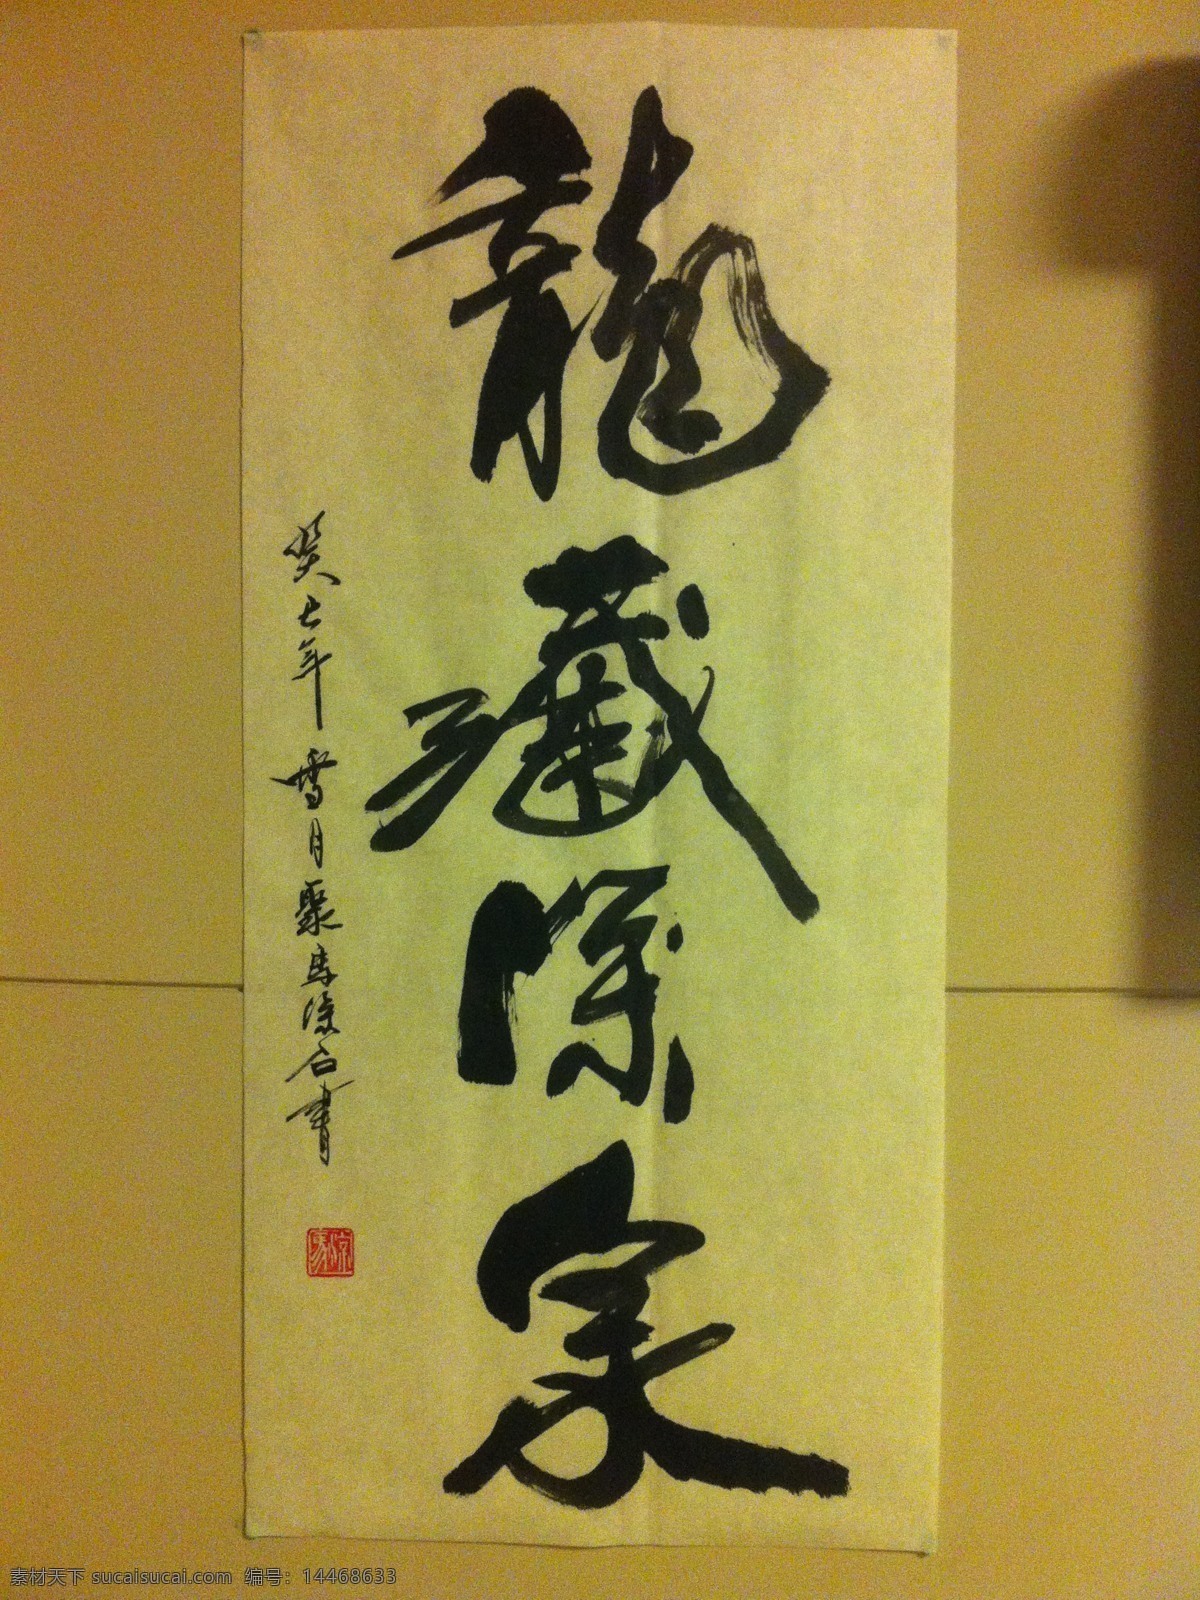 龍藏深泉
癸巳年雪月聚馬石書
素材天下 sucaisucai.com 编号：14468633